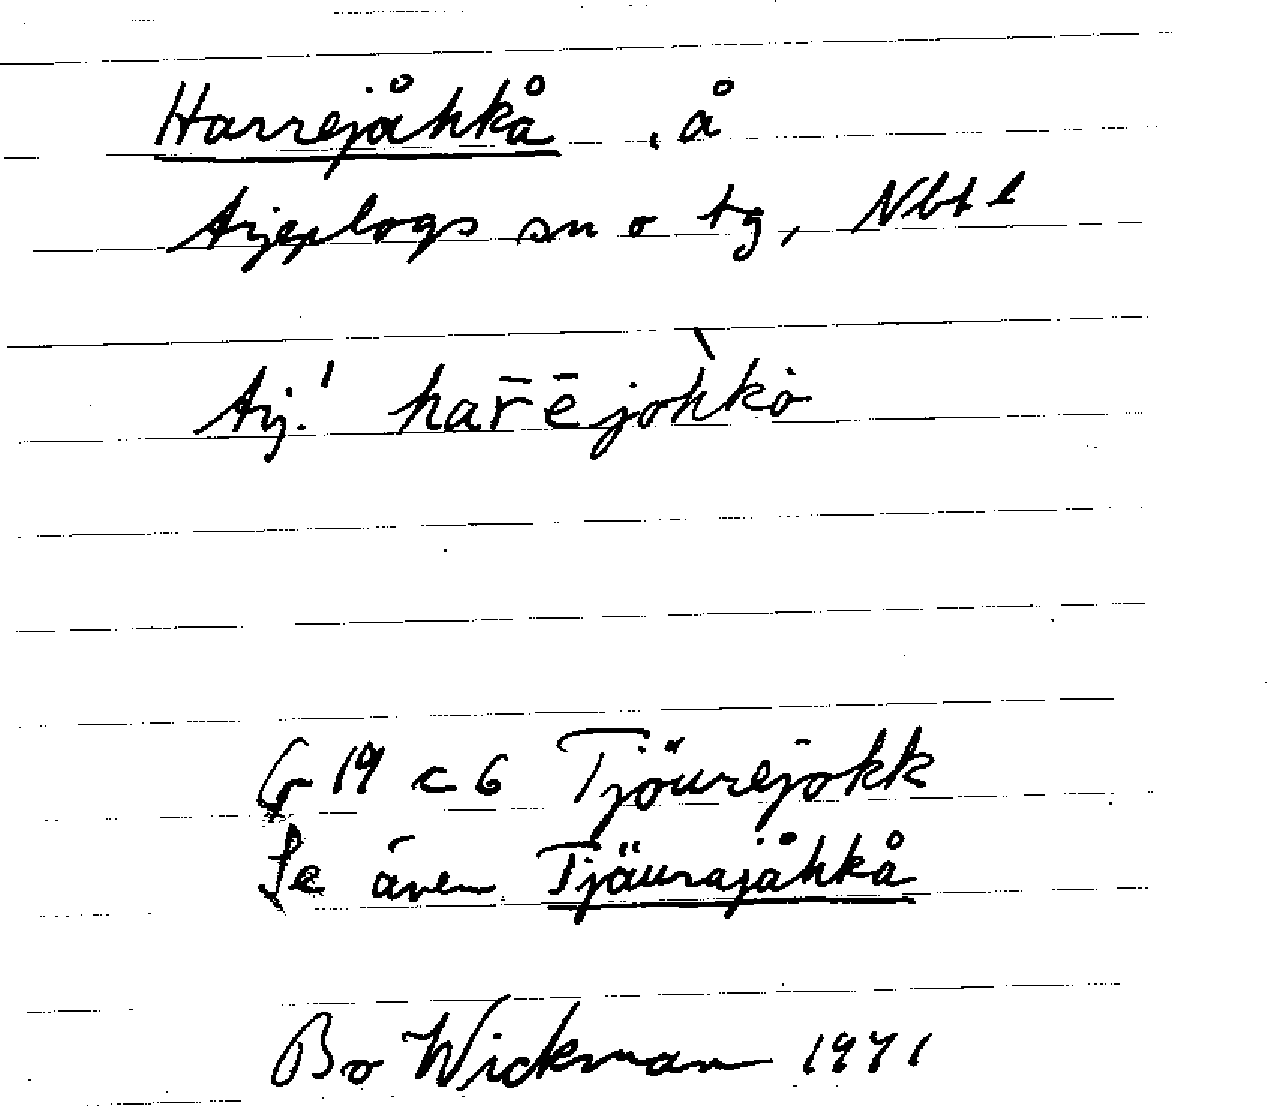 Harrejåhkå, å
Arjeplogs sn o tg, Nbtl
Arj.! har̄ējoh̀kȯ
G 19 c 6 Tjöurejokk
Se även Tjäurajåhkå
Bo Wickman 1971